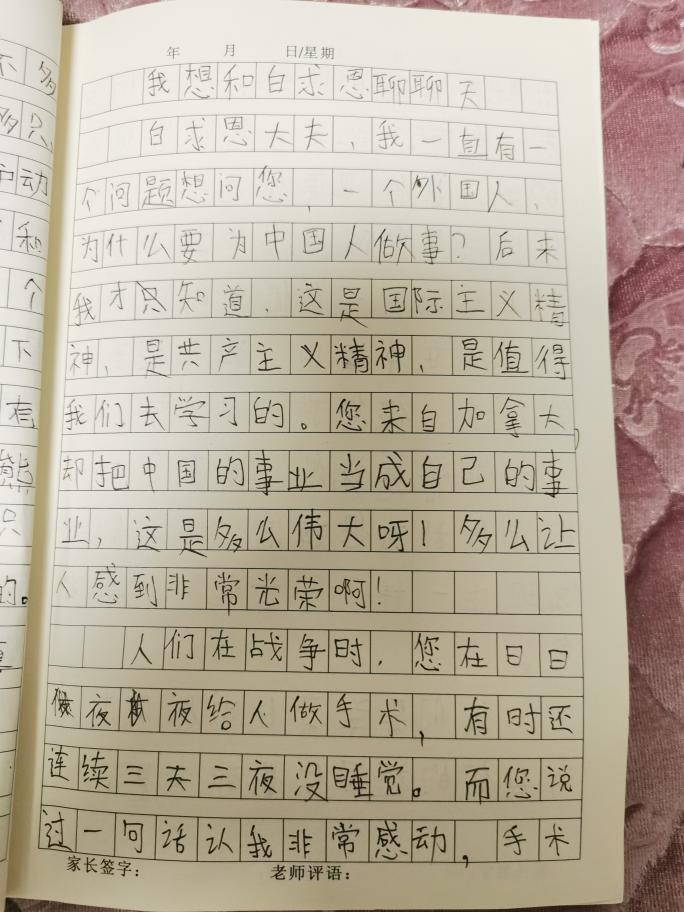 不多
多只
动
和
个
下
有
熊
只
的。
年 月 日/星期
我想和白求恩聊聊天
白求恩大夫，我一直有一
个问题想问您，一个外国人，
为什么要为中国人做事？后来
我才知道，这是国际主义精
神，是共产主义精神，是值得
我们去学习的。您来自加拿大，
却把中国的事业当成自己的事
业，这是多么伟大呀！多么让
人感到非常光荣啊！
人们在战争时，您在日日
夜夜给人做手术，有时还
连续三天三夜没睡觉。而您说
过一句话认我非常感动，手术
家长签字： 老师评语：